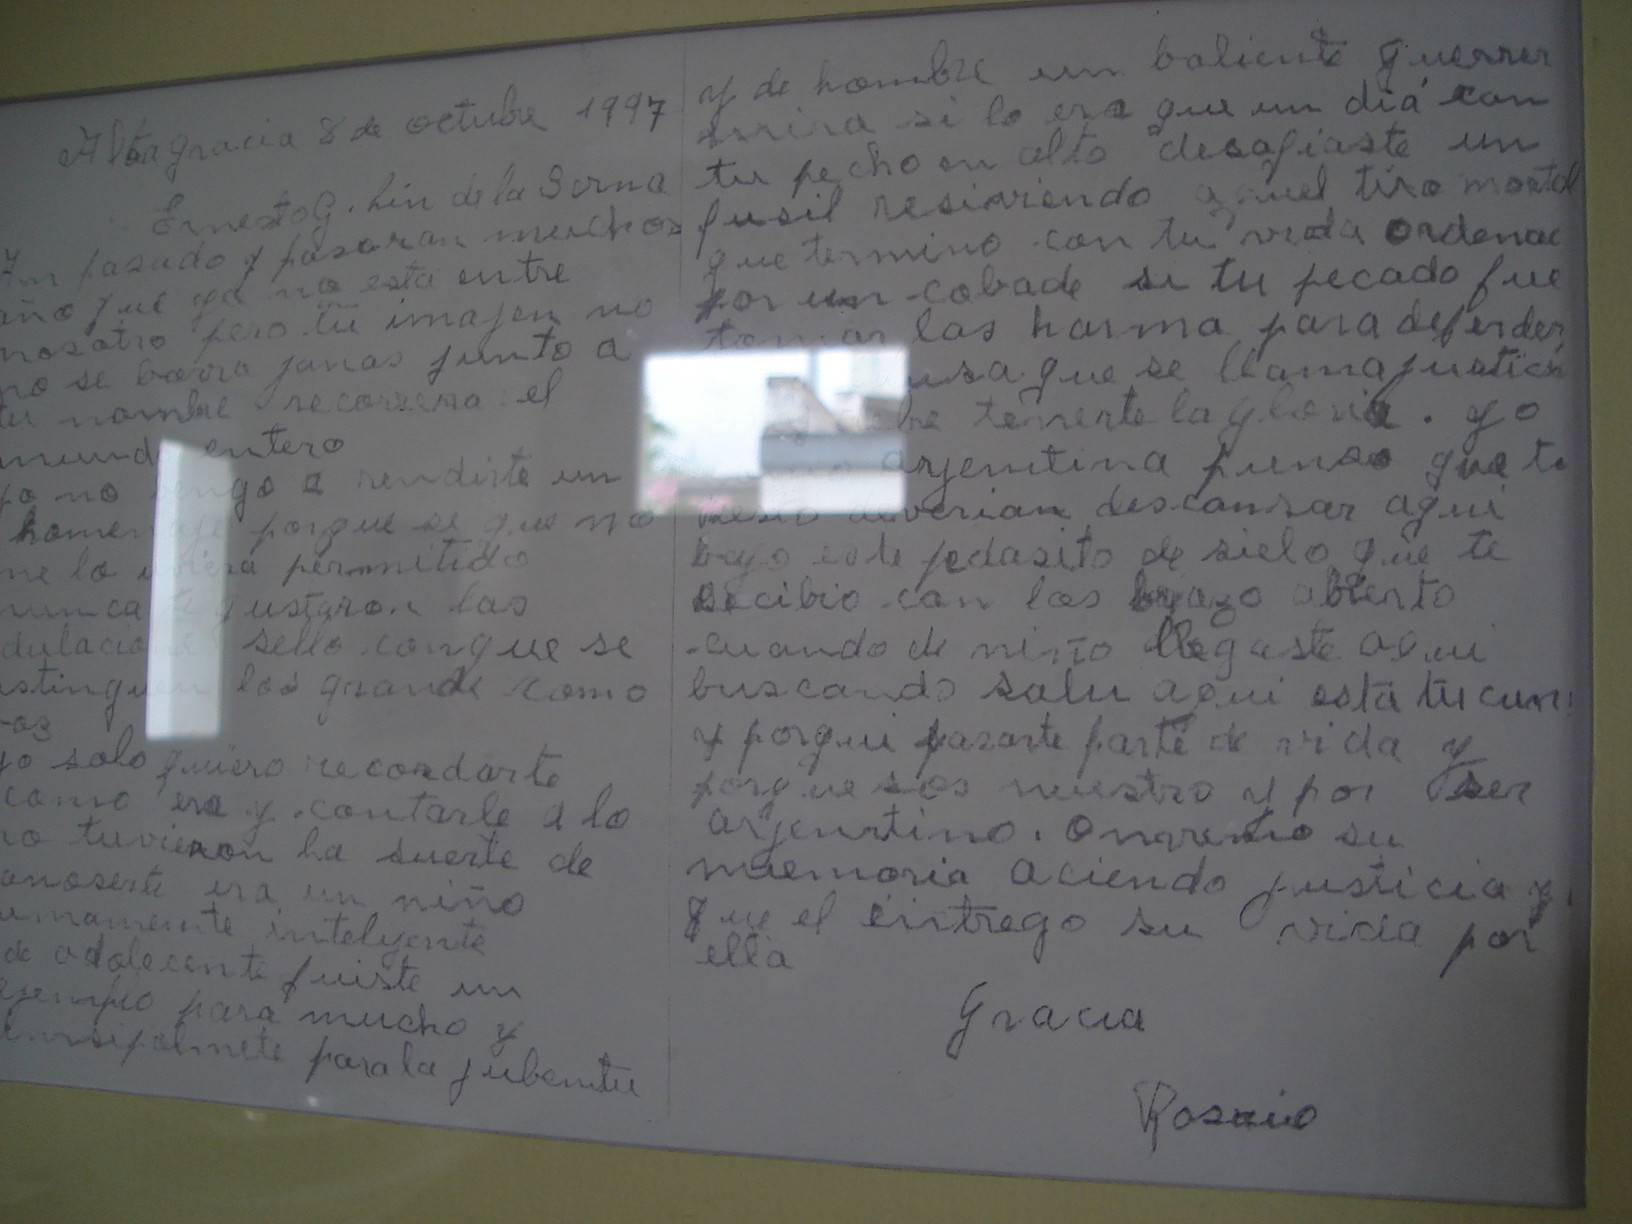 Altagracia 8 de octubre 1997
Ernesto G. Lin de la Serna
An pasado y pasaran muchos
año que ya no esta entre
nosotro pero tu imajen no
no se borra jamas junto a
tu nombre recorrera el
mundo entero
yo no vengo a rendirte un
homenaje porque se que no
me lo uviera permitido
nunca te gustaron las
adulacione sello conque se
distinguen los grande como
vos
yo solo quiero recordarte
como era y contarle a lo
no tuvieron la suerte de
conoserte era un niño
sumamente inteljente
de adolecente fuiste un
ejemplo para mucho y
prinsipalmete para la jubentu
y de hombre un baliente guerrer
si lo era que un dia con
tu pecho en alto desafiaste un
fusil resiviendo aquel tiro mortal
que termino con tu vida ordenad
por un cobade si tu pecado fue
tomar las harma para defender
usa que se llama justicia
be tenerte la gloria. yo
argentina pienso que tu
resto deverian descansar aqui
bajo este pedasito de sielo que te
recibio con los brazo abierto
cuando de niño llegaste aqui
buscando salu aqui esta tu
y porqui pasaste parte de vida y
porque sos nuestro y por ser
argentino. Onremo su
memoria aciendo justicia y
que el entrego su vida por
ella
Gracia
Rosario